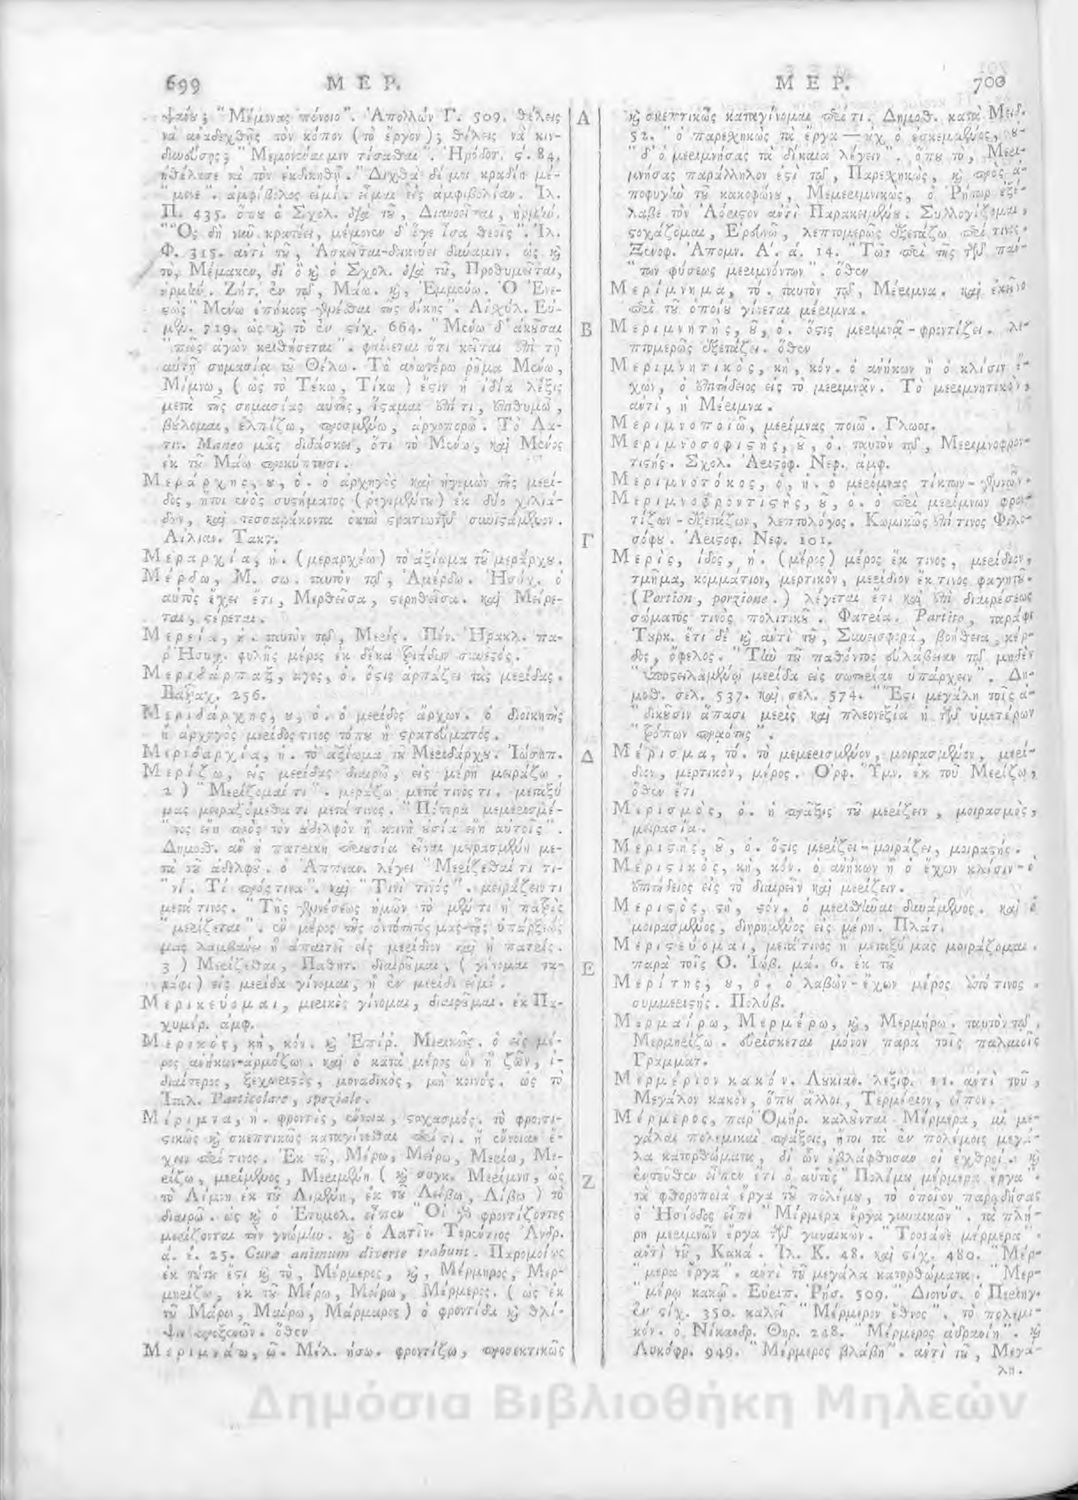 699 ΜΕΡ.
ψαυς; "Μέμονας πόνοιο". Ἀπολλών Γ. 509. θέλεις
νὰ ἀναδεχθῇς τὸν κόπον (τὸ ἔργον); θέλεις νὰ κιν-
"Μεμονέναι μιν τίσασθαι". Ἡρόδοτ. ς. 84,
ἠθέλησε νὰ τὸν ἐκδικηθῇ. "Διχθὰ δέ μοι κραδίη μέ-
"μονε". ἀμφίβολος εἰμί. εἶμαι εἰς ἀμφιβολίαν. Ἰλ.
Π. 435. ὅπου ὁ Σχολ. διὰ τοῦ, Διανοεῖται,
Φ. 315. ἀντὶ τοῦ, δύναμιν. ὡς καὶ
τὸ, Μέμακεν, δι' ὃ καὶ ὁ Σχολ. διὰ τοῦ, Προθυμεῖται,
Ζήτ. ἐν τῷ, Μάω. καὶ, Ἐμμενύω. Ὁ Ἐνε-
"Μένω δίκης". Αἰσχύλ. Εὐ-
μεν. 719. ὡς καὶ τὸ ἐν στίχ. 664. "Μένω δ' ἀκοῦσαι
"πῶς ἀγὼν κριθήσεται". φαίνεται ὅτι κεῖται ἐπὶ τῇ
αὐτῇ σημασίᾳ τοῦ Θέλω. Τὸ ἀνωτέρω ῥῆμα Μένω,
Μίμνω, (ὡς τὸ Τέκω, Τίκω) ἐστὶν ἡ ἰδία λέξις
μετὰ τῆς σημασίας αὐτῆς, ἵσταμαι ἐπί τι, ἐπιθυμῶ,
βούλομαι, ἐλπίζω, προσμένω, ἀργοπορῶ. Τὸ Λα-
τιν. Maneo μᾶς διδάσκει, ὅτι τὸ Μένω, καὶ Μένος
ἐκ τοῦ Μάω προκύπτουσι.
Μεράρχης, ου, ὁ. ὁ ἀρχηγὸς καὶ ἡγεμὼν τῆς μερί-
δος, ἤτοι ἑνὸς συστήματος (ῥεγιμέντου) ἐκ δύο χιλιά-
δων, καὶ τεσσαράκοντα ὀκτὼ στρατιωτῶν συνιστάμενον.
Αἰλιαν. Τακτ.
Μεραρχία, ἡ. (μεραρχέω) τὸ ἀξίωμα τοῦ μεράρχου.
Μέρδω, Μ. σω. ταυτὸν τῷ, Ἀμέρδω. Ἡσύχ. ὁ
αὐτὸς ἔχει ἔτι, Μερθεῖσα, στερηθεῖσα. καὶ Μείρε-
ται, στέρεται.
Μερεία, ἡ. ταυτὸν τῷ, Μερίς. Πίν. Ἡρακλ. πα-
ρ' Ἡσυχ. φυλῆς μέρος ἐκ δέκα
Μεριδάρπαξ, αγος, ὁ. ὅστις ἁρπάζει τὰς μερίδας.
Βατραχ. 256.
Μεριδάρχης, ου, ὁ. ὁ μερίδος ἄρχων. ὁ διοικητὴς
ἢ ἀρχηγὸς μερίδος τινος τόπου ἢ στρατεύματος.
Μεριδαρχία, ἡ. τὸ ἀξίωμα τοῦ Μεριδάρχου. Ἰώσηπ.
Μερίζω, εἰς μερίδας διαιρῶ, εἰς μέρη μοιράζω.
2) "Μερίζομαί τι". μοιράζω μετά τινός τι. μεταξύ
μας μοιραζόμεθά τι μετά τινος. "Πότερα μεμερισμέ-
"νος εἴη πρὸς τὸν ἀδελφὸν ἢ κοινὴ οὐσία εἴη αὐτοῖς".
Δημοσθ. ἂν ἡ πατρικὴ περιουσία εἶναι μοιρασμένη με-
τὰ τοῦ ἀδελφοῦ. ὁ Ἀππιαν. λέγει "Μερίζεσθαί τι τι-
"νί. Τὶ πρός τινα". καὶ "Τινί τινός". μοιράζειν τι
μετά τινος. "Τῆς γενέσεως ἡμῶν τὸ μέν τι ἡ πατρὶς
"μερίζεται". ἓν μέρος τῆς ὀντότητός μας-τῆς ὑπάρξεώς
μας λαμβάνει ἢ ἀπαιτεῖ εἰς μερίδιον καὶ ἡ πατρίς.
3) Μερίζεσθαι, Παθητ. διαιροῦμαι, (γίνομαι ταρ-
μάρι) εἰς μερίδα γίνομαι, ἢ ἐν μερίδι εἰμί.
Μερικεύομαι, μερικὸς γίνομαι, διαιροῦμαι. ἐκ Πα-
χυμέρ. ἀμφ.
Μερικός, κὴ, κόν. καὶ Ἐπίρ. Μερικῶς. ὁ εἰς μέ-
ρος ἀνήκων-ἁρμόζων. καὶ ὁ κατὰ μέρος ὢν ἢ ζῶν, ἰ-
διαίτερος, ξεχωριστός, μοναδικός, μὴ κοινός. ὡς τὸ
Ἰταλ. Particolare, speziale.
Μέριμνα, ἡ. φροντὶς, ἔννοια, στοχασμός. τὸ φροντι-
στικῶς καὶ σκεπτικῶς καταγίνεσθαι περί τι. ἢ ἔννοιαν ἔ-
χειν περί τινος. Ἐκ τοῦ, Μέρω, Μείρω, Μερίω, Με-
ρίζω, μερίμενος, Μεριμένη (καὶ συγκ. Μερίμνη, ὡς
τὸ Λίμνη ἐκ τοῦ Λιμένη, ἐκ τοῦ Λείβω, Λίβω) τὸ
διαιρῶ. ὡς καὶ ὁ Ἐτυμολ. εἶπεν "Οἱ γὰρ φροντίζοντες
μερίζονται τὴν γνώμην. καὶ ὁ Λατῖν. Τερέντιος Ἀνδρ.
ά. έ. 25. Curæ animum diverse trahunt. Παρομοίως
ἐκ τούτου ἐστὶ καὶ τὸ, Μέρμερος, καὶ, Μέρμηρος, Μερ-
μηρίζω, ἐκ τοῦ Μέρω, Μείρω, Μέρμερος. (ὡς ἐκ
τοῦ Μάρω, Μαίρω, Μάρμαρος) ὁ φροντίδα καὶ θλί-
ψιν προξενῶν. ὅθεν
Μεριμνάω, ῶ. Μέλ. ήσω. φροντίζω, προσεκτικῶς
Α
Β
Γ
Δ
Ε
Ζ
ΜΕΡ. 700
καὶ σκεπτικῶς καταγίνομαι περί τι. Δημοσθ. κατὰ Μειδ.
52. "ὁ παρεχηκὼς τὰ ἔργα — οὐχ ὁ ἐσκεμμένος, οὐ-
"δ' ὁ μεριμνήσας τὰ δίκαια λέγειν". ὅπου τὸ, Μερι-
μνήσας παράλληλον ἐστὶ τῷ, Παρεχηκὼς, καὶ πρὸς ἀ-
ποφυγὴν τοῦ κακοφώνου, Μεμεριμνηκὼς, ὁ Ῥήτωρ ἐξέ-
λαβε τὸν Ἀόριστον ἀντὶ Παρακειμένου. Συλλογίζομαι,
στοχάζομαι, Ἐρευνῶ, λεπτομερῶς ἐξετάζω περί τινος.
Ξενοφ. Ἀπομν. Α΄. ά. 14. "Τῶν περὶ τῆς τῶν πάν-
"των φύσεως μεριμνώντων". ὅθεν
Μερίμνημα, τό. ταυτὸν τῷ, Μέριμνα. καὶ ἐκεῖνο
περὶ τοῦ ὁποίου γίνεται μέριμνα.
Μεριμνητὴς, οῦ, ὁ. ὅστις μεριμνᾷ-φροντίζει. λε-
πτομερῶς ἐξετάζει. ὅθεν
Μεριμνητικὸς, κὴ, κόν. ὁ ἀνήκων ἢ ὁ κλίσιν ἔ-
χων, ὁ ἐπιτήδειος εἰς τὸ μεριμνᾷν. Τὸ μεριμνητικὸν,
ἀντὶ, ἡ Μέριμνα.
Μεριμνοποιῶ, μερίμνας ποιῶ. Γλωσσ.
Μεριμνοσοφιστὴς, οῦ, ὁ. ταυτὸν τῷ, Μεριμνοφρον-
τιστής. Σχολ. Ἀριστοφ. Νεφ. ἀμφ.
Μεριμνοτόκος, ὁ, ἡ. ὁ μερίμνας τίκτων-γεννῶν.
Μεριμνοφροντιστὴς, οῦ, ὁ. ὁ περὶ μεριμνῶν φρον-
τίζων-ἐξετάζων, λεπτολόγος. Κωμικῶς ἐπί τινος Φιλο-
σόφου. Ἀριστοφ. Νεφ. 101.
Μερὶς, ίδος, ἡ. (μέρος) μέρος ἔκ τινος, μερίδιον,
τμῆμα, κομμάτιον, μερτικὸν, μερίδιον ἔκ τινος φαγητοῦ.
(Portion, porzione.) λέγεται ἔτι καὶ ἐπὶ διαιρέσεως
σώματός τινος πολιτικοῦ. Φατρία. Partito, παρὰ
Τουρκ. ἔτι δὲ καὶ ἀντὶ τοῦ, Συνεισφορὰ, βοήθεια, κέρ-
δος, ὄφελος. "Τὴν τοῦ παθόντος εὐλάβειαν τῷ μηδὲν
"ὑποστειλαμένῳ μερίδα εἰς σωτηρίαν ὑπάρχειν". Δη-
μοσθ. σελ. 537. καὶ σελ. 574. "Ἔστι μεγάλη τοῖς ἀ-
"δικοῦσιν ἅπασι μερὶς καὶ πλεονεξία ἡ τῶν ὑμετέρων
"τρόπων πραότης".
Μέρισμα, τό. τὸ μεμερισμένον, μοιρασμένον, μερί-
διον, μερτικὸν, μέρος. Ὀρφ. Ὕμν. ἐκ τοῦ Μερίζω,
ὅθεν ἔτι
Μερισμὸς, ὁ. ἡ πρᾶξις τοῦ μερίζειν, μοιρασμὸς,
μοιρασία.
Μεριστὴς, οῦ, ὁ. ὅστις μερίζει-μοιράζει, μοιραστής.
Μεριστικὸς, κὴ, κόν. ὁ ἀνήκων ἢ ὁ ἔχων κλίσιν-ὁ
ἐπιτήδειος εἰς τὸ διαιρεῖν καὶ μερίζειν.
Μεριστὸς, στὴ, στόν. ὁ μερισθῆναι δυνάμενος. καὶ ὁ
μοιρασμένος, διῃρημένος εἰς μέρη. Πλατ.
Μεριτεύομαι, μετά τινος ἢ μεταξύ μας μοιράζομαι.
παρὰ τοῖς Ο. Ἰώβ. μά. 6. ἐκ τοῦ
Μερίτης, ου, ὁ. ὁ λαβὼν-ἔχων μέρος ἀπό τινος.
συμμεριστής. Πολύβ.
Μερμαίρω, Μερμέρω, καὶ, Μερμήρω. ταυτὸν τῷ,
Μερμηρίζω. εὑρίσκεται μόνον παρὰ τοῖς παλαιοῖς
Γραμματ.
Μερμέριον κακόν. Λουκιαν. λεξιφ. 11. ἀντὶ τοῦ,
Μεγάλον κακὸν, ὅπου ἄλλοι, Τερμέριον, εἶπον.
Μέρμερος, παρ' Ὁμήρ. καλοῦνται Μέρμερα, αἱ με-
γάλαι πολεμικαὶ πράξεις, ἤτοι τὰ ἐν πολέμοις μεγά-
λα κατορθώματα, δι' ὧν ἐβλάφθησαν οἱ ἐχθροί. καὶ
ἐντεῦθεν εἶπεν ἔτι ὁ αὐτὸς "Πολέμου μέρμερα ἔργα".
τὰ φθοροποιὰ ἔργα τοῦ πολέμου, τὸ ὁποῖον παρῳδήσας
ὁ Ἡσίοδος εἶπε "Μέρμερα ἔργα γυναικῶν". τὰ πλή-
ρη μεριμνῶν ἔργα τῶν γυναικῶν. "Τοσσάδε μέρμερα".
ἀντὶ τοῦ, Κακά. Ἰλ. Κ. 48. καὶ στίχ. 480. "Μέρ-
"μερα ἔργα". ἀντὶ τοῦ μεγάλα κατορθώματα. "Μερ-
"μέρῳ κακῷ. Εὐριπ. Ῥήσ. 509." Διονύσ. ὁ Περιηγ.
ἐν στίχ. 350. καλεῖ "Μέρμερον ἔθνος". τὸ πολεμι-
κόν. ὁ Νίκανδρ. Θηρ. 248. "Μέρμερος ἀδρανίη". καὶ
Λυκόφρ. 949. "Μέρμερος βλάβη". ἀντὶ τοῦ, Μεγά-
λη.
Δημόσια Βιβλιοθήκη Μηλεών